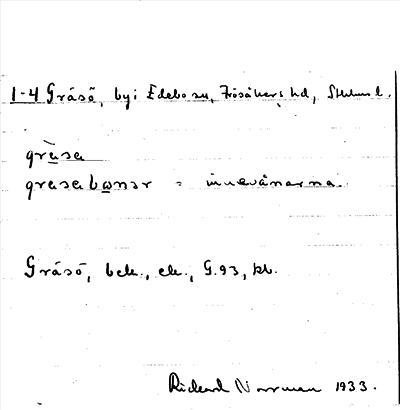 1-4 Gräsö, by i Edebo sn, Frösåkers hd, Sthlms l.
gràsa
grasabǫnər = innevånarna.
Gräsö, bek., ek., G.93, kb.
Rickard Norrman 1933.